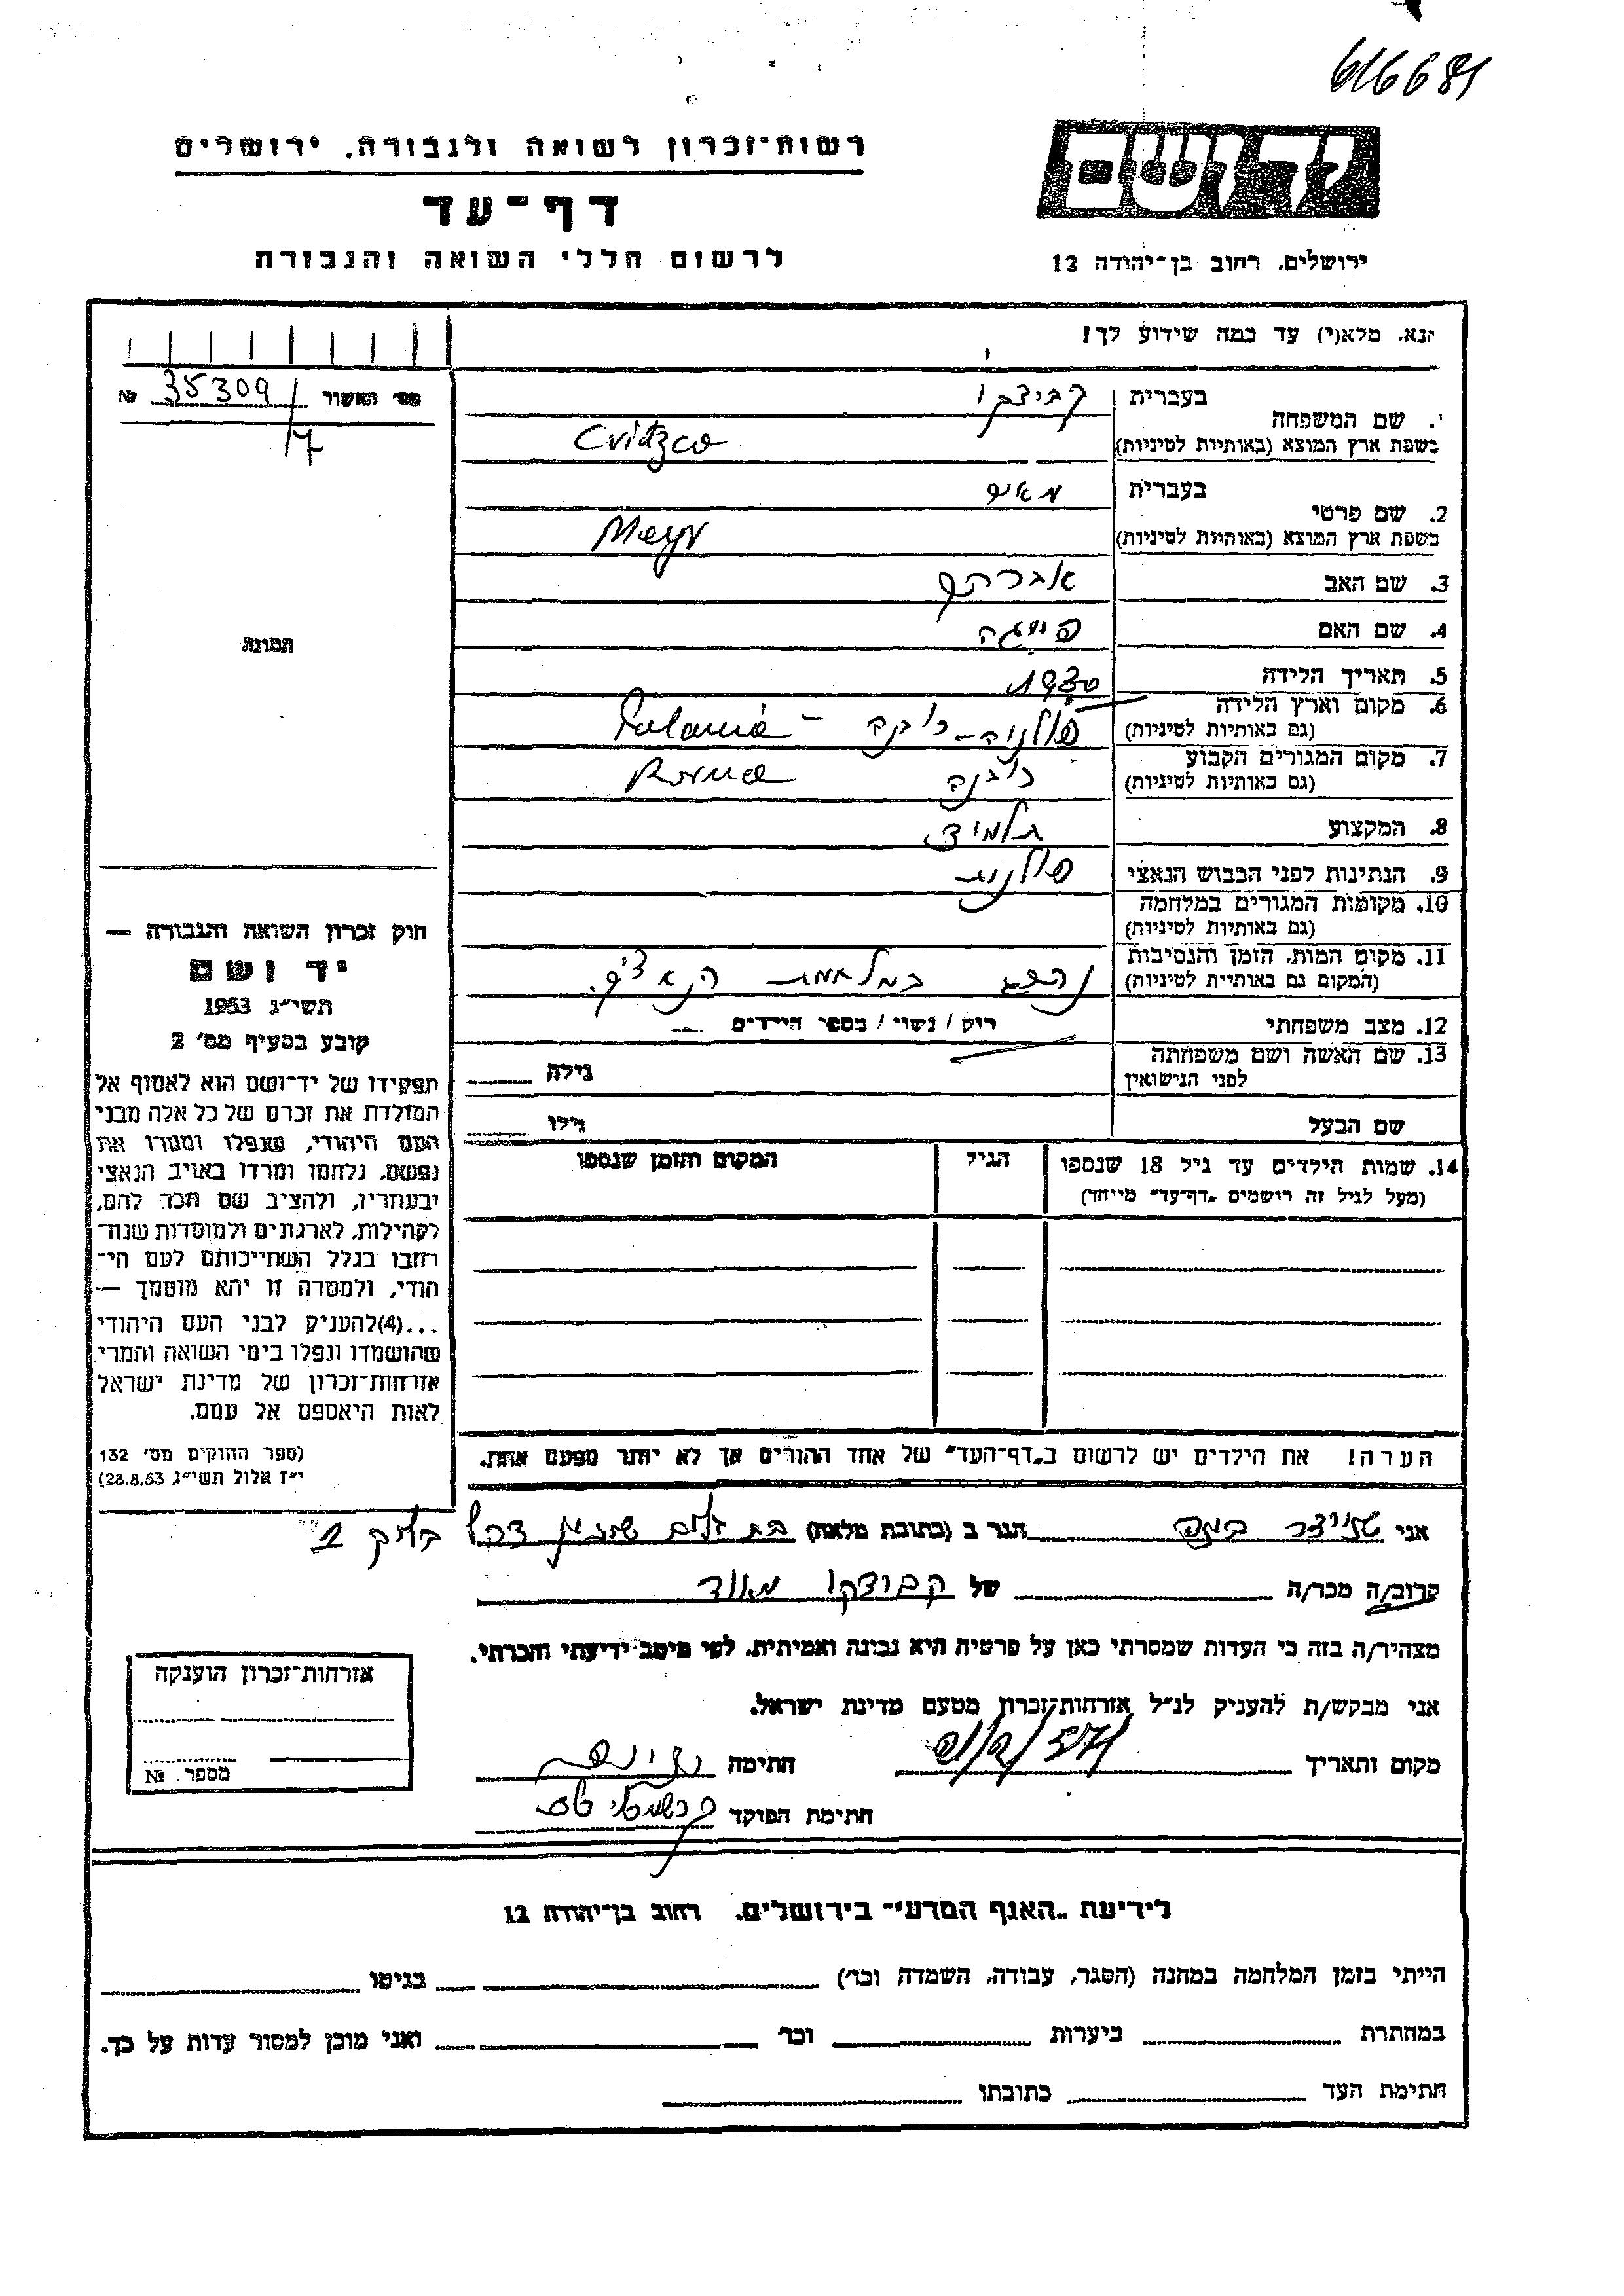 616684
רשות־זכרון לשואה ולגבורה, ירושלים
דף־עד
לרשום חללי השואה והגבורה
יד ושם
ירושלים, רחוב בן־יהודה 12
נא, מלא(י) עד כמה שידוע לך!
מס' האשור 35309/ №
1. שם המשפחה
בעברית קביצקו
בשפת ארץ המוצא (באותיות לטיניות) Cvitzco
2. שם פרטי
בעברית מאיר
בשפת ארץ המוצא (באותיות לטיניות) Mayr
3. שם האב אברהם
4. שם האם פייגה
5. תאריך הלידה 1930
6. מקום וארץ הלידה פולניה - רובנה - Polania
(גם באותיות לטיניות)
7. מקום המגורים הקבוע רובנה
(גם באותיות לטיניות)
8. המקצוע תלמיד
9. הנתינות לפני הכבוש הנאצי פולנית
10. מקומות המגורים במלחמה
(גם באותיות לטיניות)
11. מקום המות, הזמן והנסיבות נהרג במלחמת הנאצים.
(המקום גם באותיות לטיניות)
12. מצב משפחתי רוק / נשוי / מספר הילדים
13. שם האשה ושם משפחתה גילה
לפני הנישואין
שם הבעל גילו
14. שמות הילדים עד גיל 18 שנספו הגיל המקום והזמן שנספו
(מעל לגיל זה רושמים „דף־עד" מיוחד)
הערה! את הילדים יש לרשום ב„דף־העד" של אחד ההורים אך לא יותר מפעם אחת.
התמונה
חוק זכרון השואה והגבורה —
יד ושם
תשי״ג 1953
קובע בסעיף מס' 2
תפקידו של יד־ושם הוא לאסוף אל
המולדת את זכרם של כל אלה מבני
העם היהודי, שנפלו ומסרו את
נפשם, נלחמו ומרדו באויב הנאצי
ובעוזריו, ולהציב שם וזכר להם,
לקהילות, לארגונים ולמוסדות שנח־
רבו בגלל השתייכותם לעם הי־
הודי, ולמטרה זו יהא מוסמך —
...(4) להעניק לבני העם היהודי
שהושמדו ונפלו בימי השואה והמרי
אזרחות־זכרון של מדינת ישראל
לאות היאספם אל עמם.
(ספר החוקים מס' 132
י״ז אלול תשי״ג, 28.8.53)
אני הגר ב (כתובת מלאה) בת ים
קרוב/ה מכר/ה של קביצקו מאיר
מצהיר/ה בזה כי העדות שמסרתי כאן על פרטיה היא נכונה ואמיתית, לפי מיטב ידיעתי והכרתי.
אני מבקש/ת להעניק לנ״ל אזרחות־זכרון מטעם מדינת ישראל.
מקום ותאריך חתימה
חתימת הפוקד
אזרחות־זכרון הוענקה
מספר. №
לידיעת „האגף המדעי" בירושלים, רחוב בן־יהודה 12
הייתי בזמן המלחמה במחנה (הסגר, עבודה, השמדה וכו') בגיטו
במחתרת ביערות וכו' ואני מוכן למסור עדות על כך.
חתימת העד כתובתו